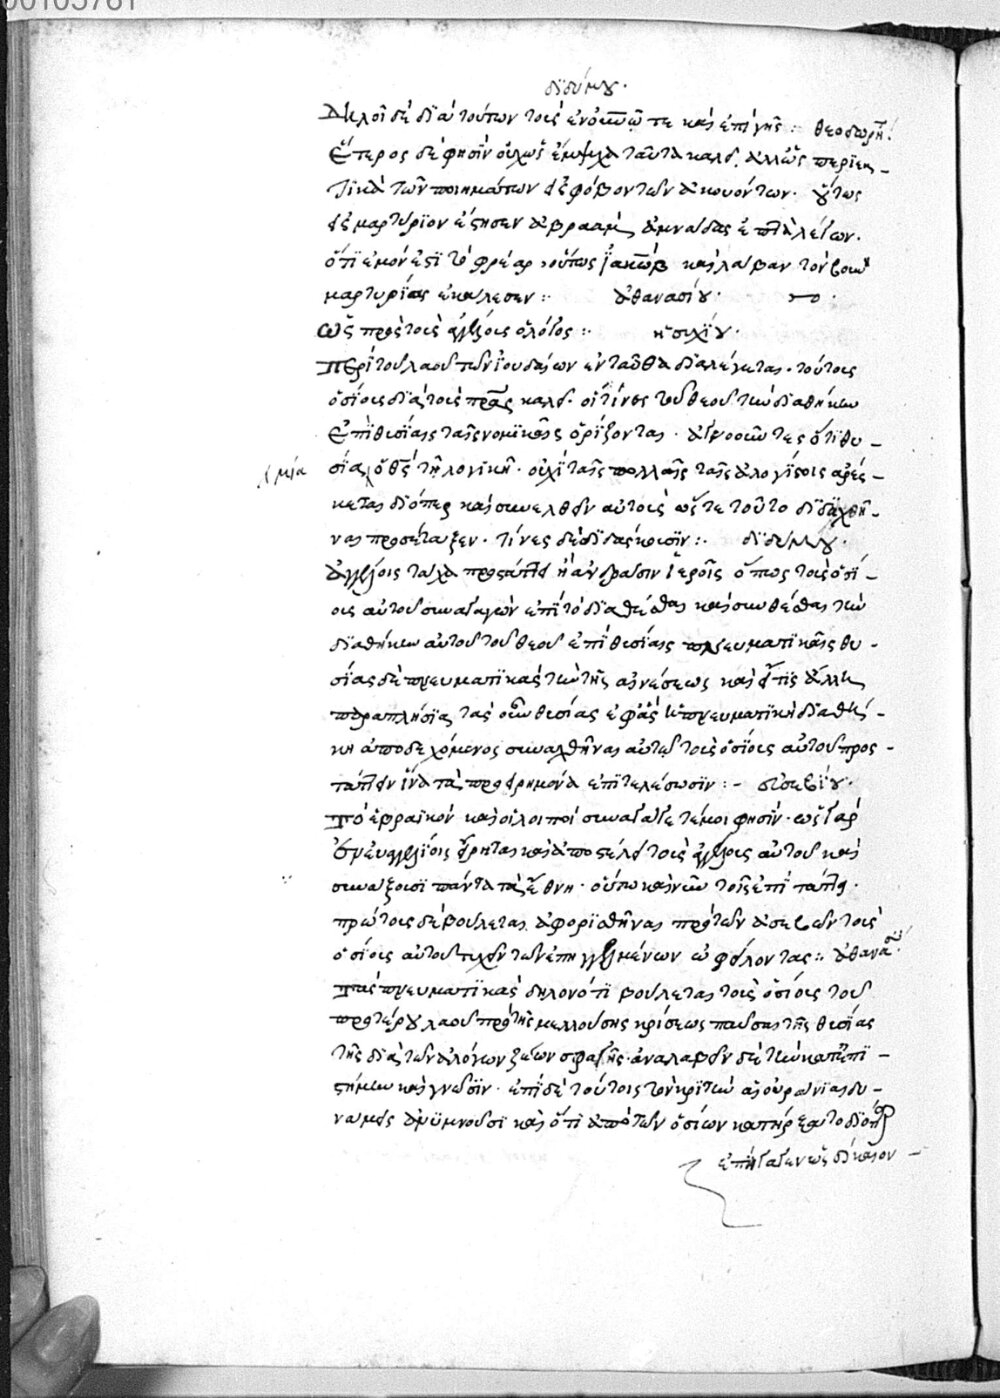 00105761
διδύμου·
Δηλοῖ δὲ διὰ τούτων τοὺς ἐν οὐνῶ τε καὶ ἐπὶ γῆς :· θεοδωρή:
Ἕτερος δέ φησιν οὐχ ὡς ἔμψυχα ταῦτα καλεῖ, ἀλλ' ὡς περιεκ-
τικὰ τῶν ποιημάτων εἰς φόβον τῶν ἀκουόντων· οὕτως
εἰς μαρτύριον ἔστησεν ἀβραὰμ ἀμνάδας ἑπτὰ λέγων·
ὅτι ἐμόν ἐστι τὸ φρέαρ· οὕτως ἰακὼβ καὶ λάβαν τὸν βουνὸν
μαρτυρίας ἐκάλεσεν :· ἀθανασίου·
ὡς πρὸς τοὺς ἀγγέλους ὁ λόγος :· ἡσυχίου·
Περὶ τοῦ λαοῦ τῶν ἰουδαίων ἐνταῦθα διαλέγεται· τούτους
ὁσίους διὰ τοὺς πρας καλεῖ· οἵτινες τοῦ θεοῦ τὴν διαθήκην
ἐπὶ θυσίαις ταῖς νομικαῖς ὁρίζονται· ἀγνοοῦντες ὅτι θυ-
μία
σία ὁ θς τῇ λογικῇ· οὐχὶ ταῖς πολλαῖς ταῖς ἀλογίστοις ἀρέσ-
κεται διόπερ καὶ συνελθεῖν αὐτοὺς ὥστε τοῦτο διδαχθῆ-
ναι προσέταξεν· τίνες δὲ διδάσκουσιν :· διδύμου·
Ἀγγέλοις τάχα προστάττει ἢ ἀνδράσιν ἱεροῖς ὅπως τοὺς ὁσί-
ους αὐτοῦ συναγαγὼν ἐπὶ τὸ διαθέσθαι καὶ συνθέσθαι τὴν
διαθήκην αὐτοῦ τοῦ θεοῦ ἐπὶ θυσίαις πνευματικαῖς θυ-
σίας δὲ πνευματικὰς τὴν τῆς αἰνέσεως καὶ εἴ τις ἄλλη
παραπλησία τὰς οὖν θυσίας ἐφ' αἷς ἡ πνευματικὴ διαθή-
κη ἀποδεχόμενος συναχθῆναι αὐτῷ τοὺς ὁσίους αὐτοῦ προσ-
τάττει ἵνα τὰ προειρημένα ἐπιτελέσωσιν :- εὐσεβίου·
Τὸ ἑβραϊκὸν καὶ οἱ λοιποὶ συναγάγετέ μοι φησίν· ὡς γὰρ
ἐν εὐαγγελίοις εἴρηται καὶ ἀποστελεῖ τοὺς ἀγγέλους αὐτοῦ καὶ
συνάξουσι πάντα τὰ ἔθνη· οὕτω καὶ νῦν τοῖς ἐπιτάττει·
πρώτους δὲ βούλεται ἀφορισθῆναι πρὸ τῶν ἀσεβῶν τοὺς
ὁσίους αὐτοῦ τυχεῖν τῶν ἐπηγγελμένων ὀφείλοντας :· ἀθανα:
Τὰς πνευματικὰς δηλονότι βούλεται τοὺς ὁσίους τοῦ
προτέρου λαοῦ πρὸ τῆς μελλούσης κρίσεως παῦσαι τῆς θυσίας
τῆς διὰ τῶν ἀλόγων ζώων σφαγῆς· ἀναλαβεῖν δὲ τὴν κατ' ἐπι-
στήμην καὶ γνῶσιν· ἐπὶ δὲ τούτοις τὸν κριτὴν αἱ οὐράνιαι δυ-
νάμεις ἀνυμνοῦσι καὶ ὅτι ἀπὸ τῶν ὁσίων κατήρξατο διὸ
ἐπήγαγεν ὡς δίκαιον -